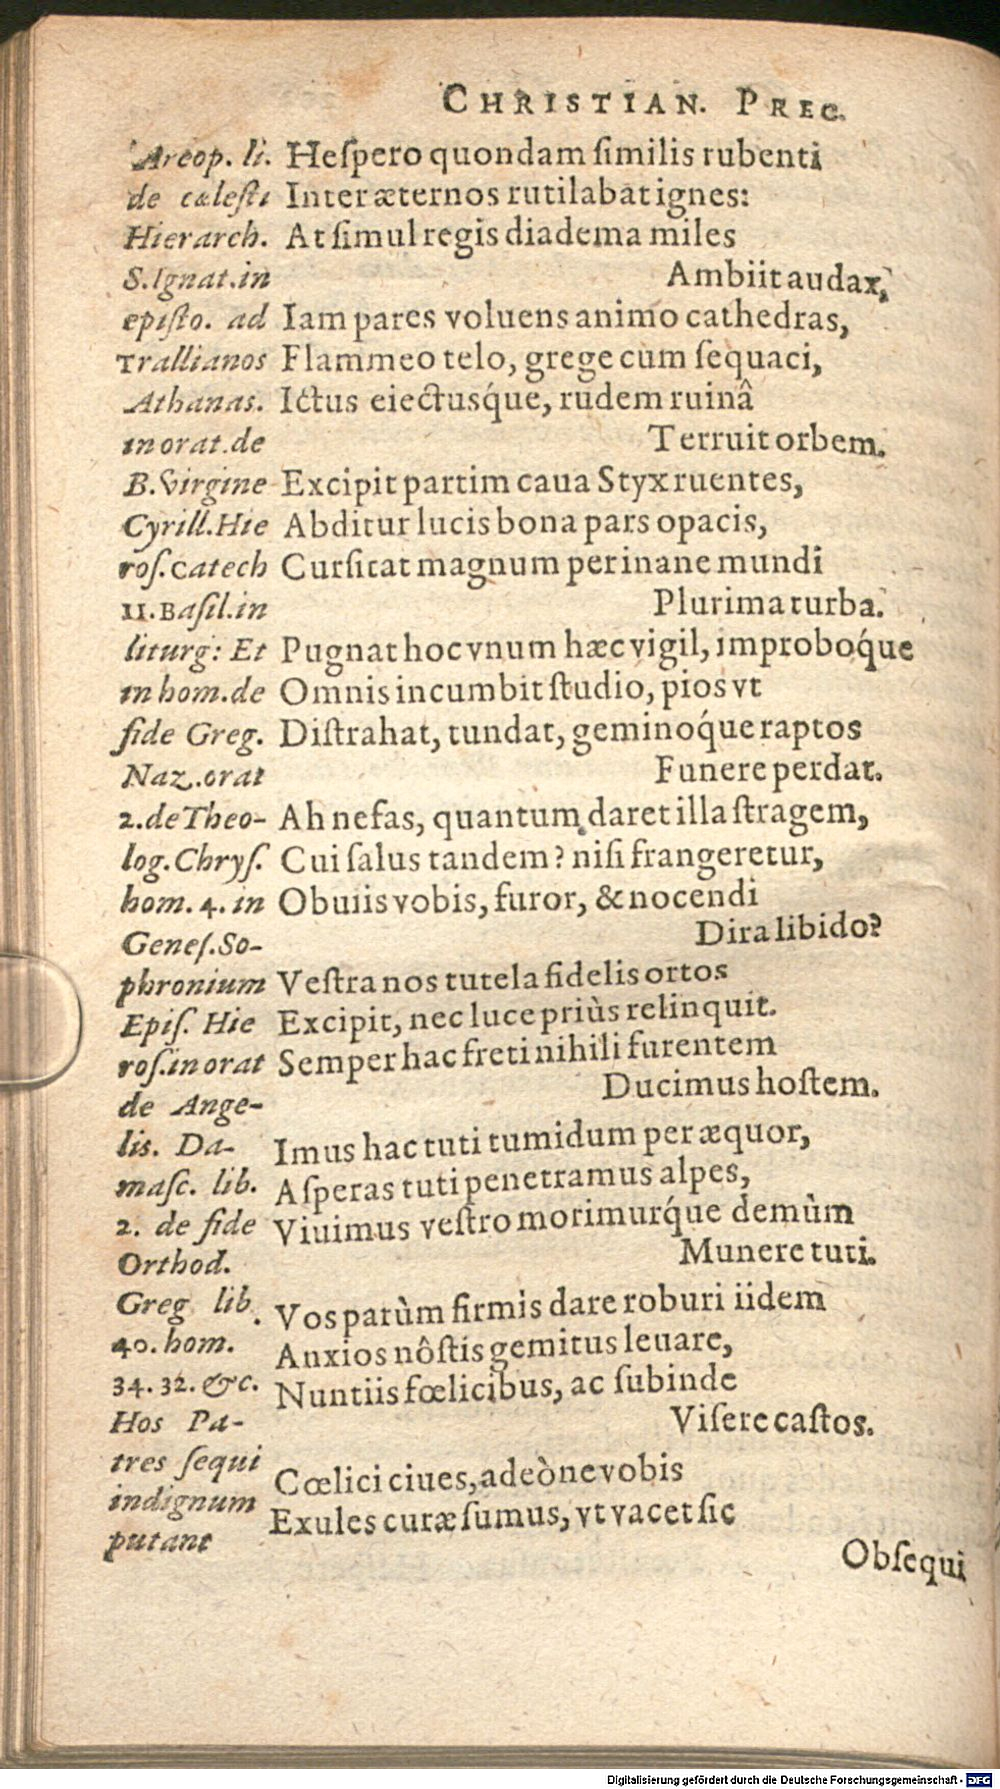 CHRISTIAN. PREC.
Areop. li.
de cælesti
Hierarch.
S. Ignat. in
episto. ad
Trallianos
Athanas.
in orat. de
B. Virgine
Cyrill. Hie
ros. Catech
11. Basil. in
liturg: Et
in hom. de
fide Greg.
Naz. orat
2. de Theo-
log. Chrys.
hom. 4. in
Genes. So-
phronium
Epis. Hie
ros. in orat
de Ange-
lis. Da-
masc. lib.
2. de fide
Orthod.
Greg lib.
40. hom.
34. 32. &c.
Hos Pa-
tres sequi
indignum
putant
Hespero quondam similis rubenti
Inter æternos rutilabat ignes:
At simul regis diadema miles
Ambiit audax,
Iam pares voluens animo cathedras,
Flammeo telo, grege cum sequaci,
Ictus eiectusq́ue, rudem ruinâ
Terruit orbem.
Excipit partim caua Styx ruentes,
Abditur lucis bona pars opacis,
Cursitat magnum per inane mundi
Plurima turba.
Pugnat hoc vnum hæc vigil, improboq́ue
Omnis incumbit studio, pios vt
Distrahat, tundat, geminoq́ue raptos
Funere perdat.
Ah nefas, quantum daret illa stragem,
Cui salus tandem? nisi frangeretur,
Obuiis vobis, furor, & nocendi
Dira libido?
Vestra nos tutela fidelis ortos
Excipit, nec luce priùs relinquit.
Semper hac freti nihili furentem
Ducimus hostem.
Imus hac tuti tumidum per æquor,
Asperas tuti penetramus alpes,
Viuimus vestro morimurq́ue demùm
Munere tuti.
Vos parùm firmis dare roburi iidem
Anxios nôstis gemitus leuare,
Nuntiis fœlicibus, ac subinde
Visere castos.
Cœlici ciues, adeòne vobis
Exules curæ sumus, vt vacet sic
Obsequi
Digitalisierung gefördert durch die Deutsche Forschungsgemeinschaft - DFG